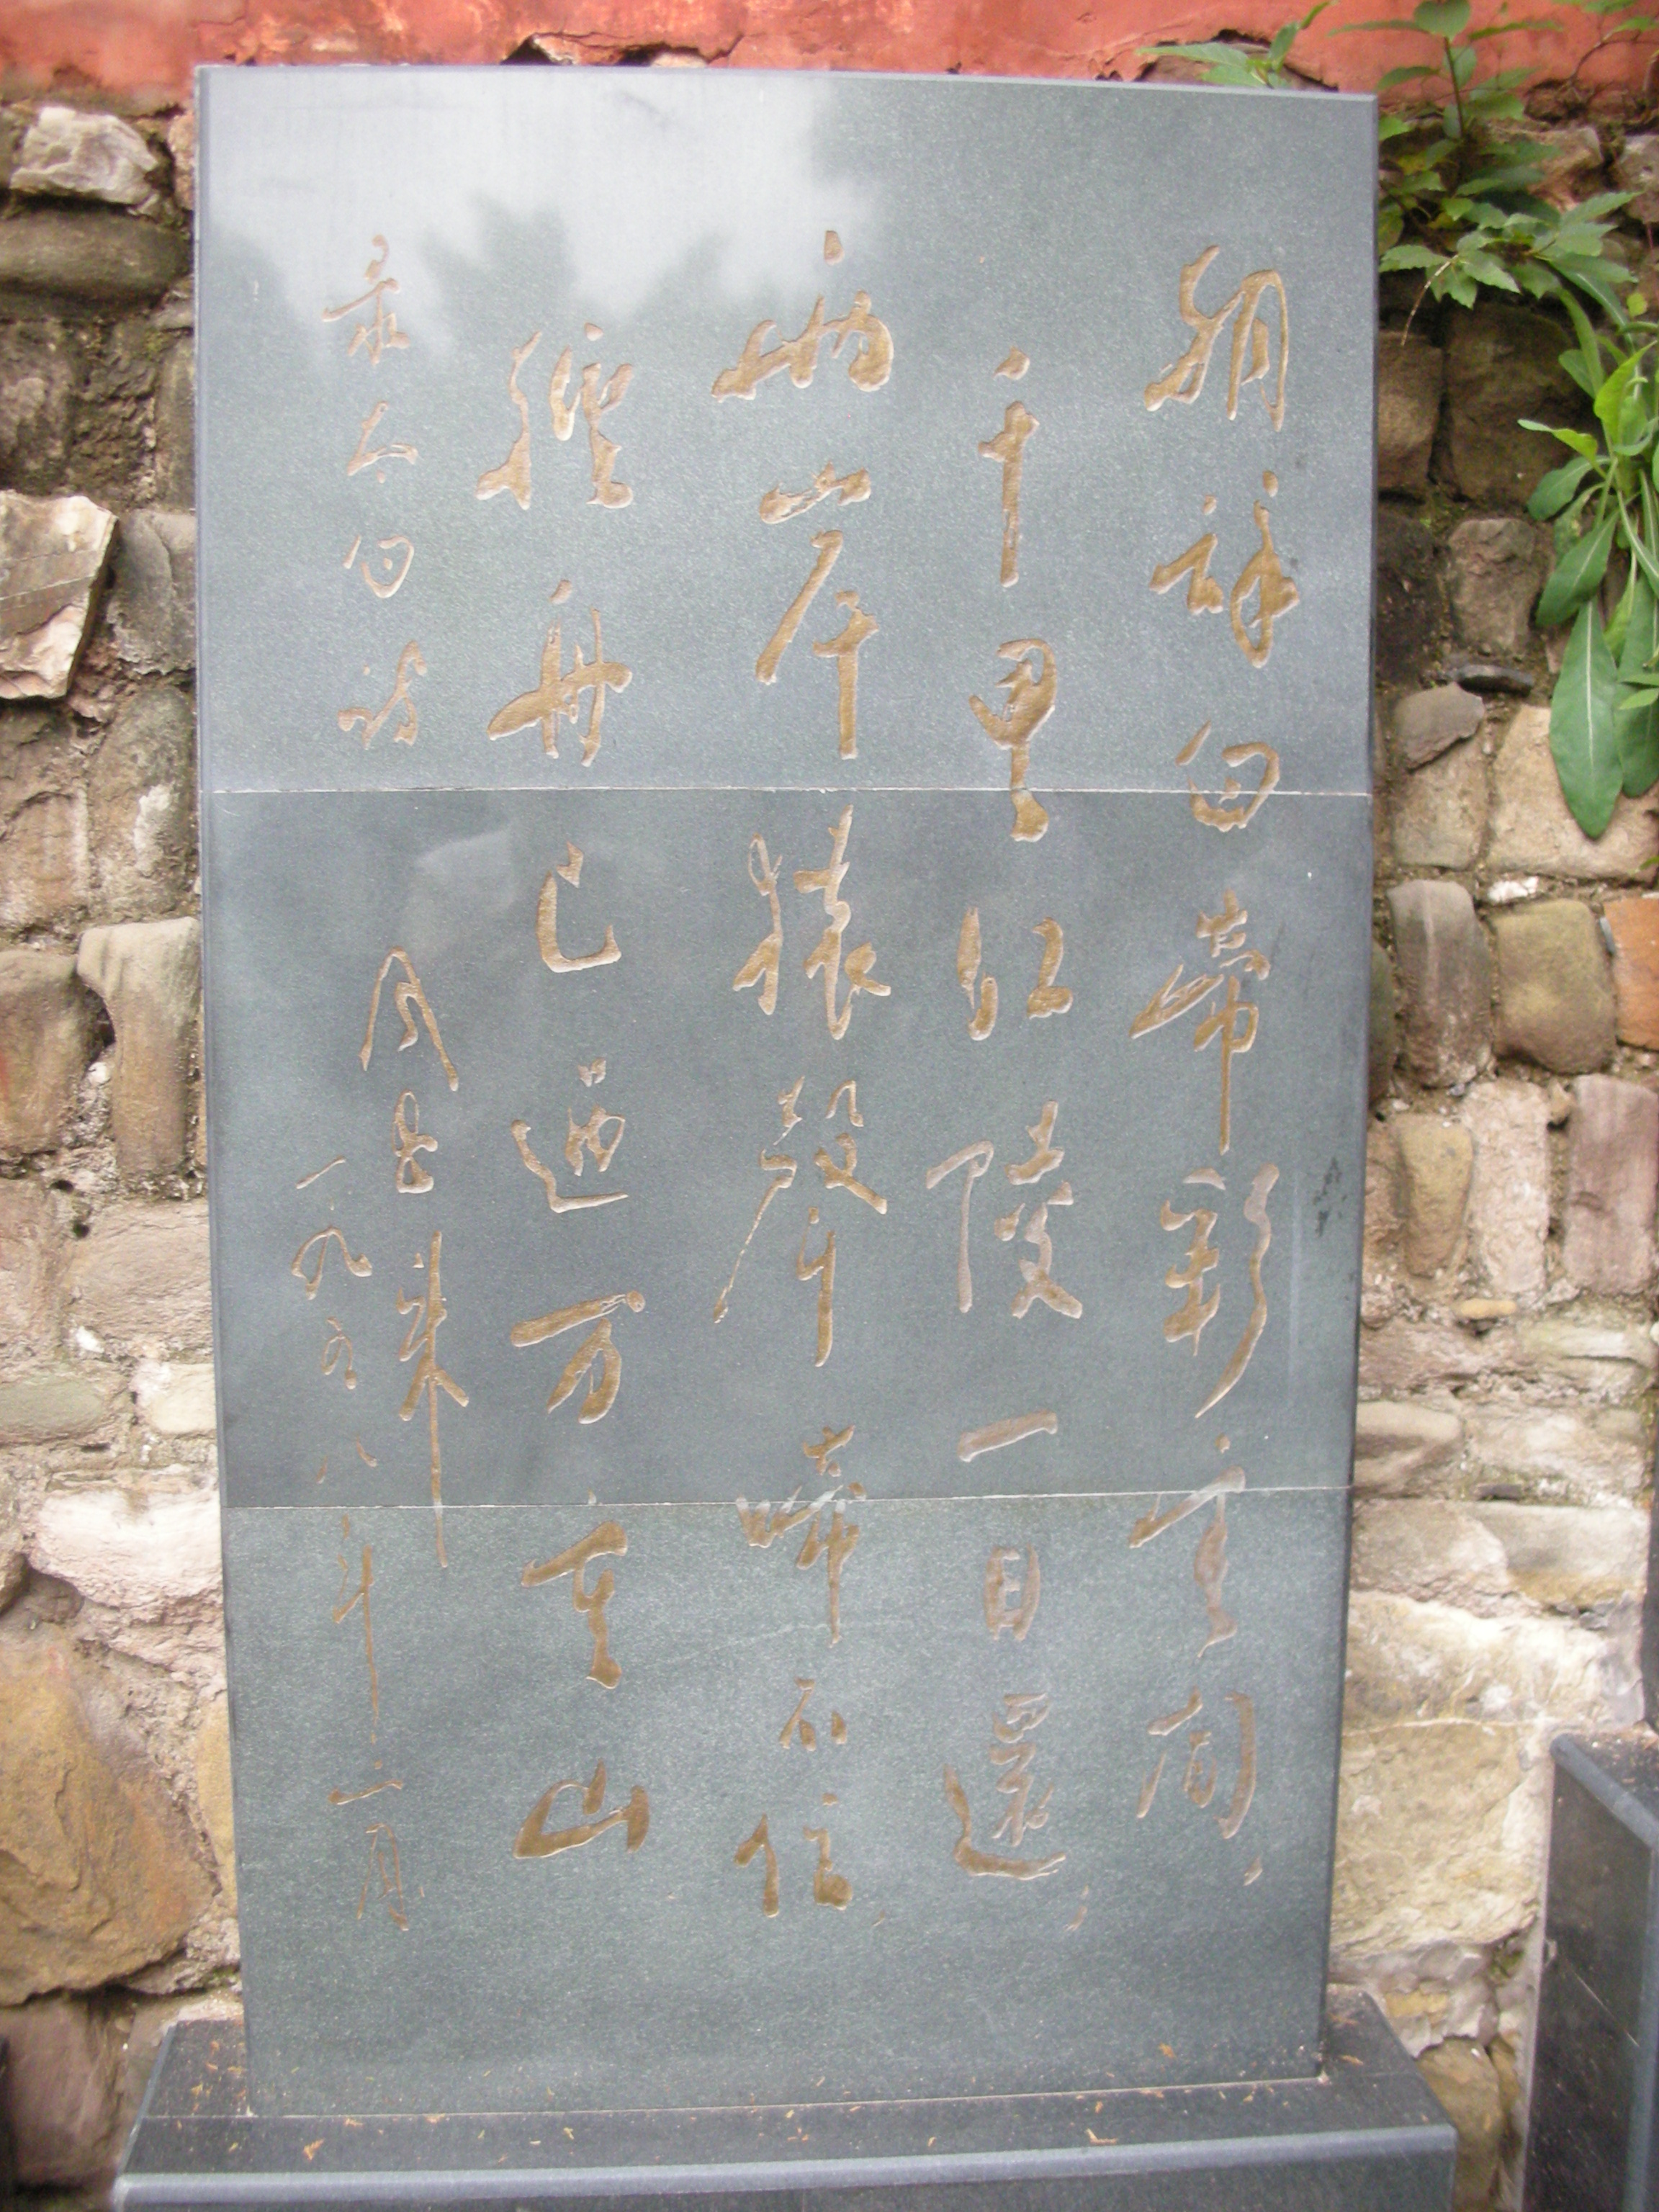 朝辞白帝彩雲间，
千里江陵一日還，
两岸猿聲啼不住，
輕舟已過万重山
录太白诗
周恩来
一九五八年二月